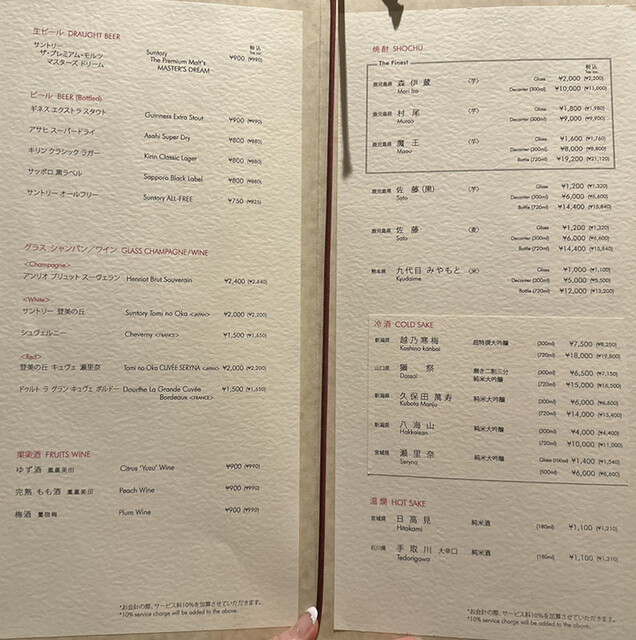 生ビール DRAUGHT BEER
税込
Tax inc.
サントリー
ザ・プレミアム・モルツ
マスターズ ドリーム
Suntory
The Premium Malt's
MASTER'S DREAM
¥900 (¥990)
ビール BEER (Bottled)
ギネス エクストラ スタウト Guinness Extra Stout ¥900 (¥990)
アサヒ スーパードライ Asahi Super Dry ¥800 (¥880)
キリン クラシック ラガー Kirin Classic Lager ¥800 (¥880)
サッポロ 黒ラベル Sapporo Black Label ¥800 (¥880)
サントリー オールフリー Suntory ALL-FREE ¥750 (¥825)
グラス シャンパン／ワイン GLASS CHAMPAGNE/WINE
<Champagne>
アンリオ ブリュット スーヴェラン Henriot Brut Souverain ¥2,400 (¥2,640)
<White>
サントリー 登美の丘 Suntory Tomi no Oka <JAPAN> ¥2,000 (¥2,200)
シュヴェルニー Cheverny <FRANCE> ¥1,500 (¥1,650)
<Red>
登美の丘 キュヴェ 瀬里奈 Tomi no Oka CUVÉE SERYNA <JAPAN> ¥2,000 (¥2,200)
ドゥルト ラ グラン キュヴェ ボルドー Dourthe La Grande Cuvée ¥1,500 (¥1,650)
Bordeaux <FRANCE>
果実酒 FRUITS WINE
ゆず酒 鳳凰美田 Citrus 'Yuzu' Wine ¥900 (¥990)
完熟 もも酒 鳳凰美田 Peach Wine ¥900 (¥990)
梅酒 鶯宿梅 Plum Wine ¥900 (¥990)
*お会計の際、サービス料10%を加算させていただきます。
*10% service charge will be added to the above.
焼酎 SHOCHU
The Finest
税込
Tax inc.
鹿児島県 森 伊 蔵 <芋> Glass ¥2,000 (¥2,200)
Mori Izo Decanter (300ml) ¥10,000 (¥11,000)
鹿児島県 村 尾 <芋> Glass ¥1,800 (¥1,980)
Murao Decanter (300ml) ¥9,000 (¥9,900)
鹿児島県 魔 王 <芋> Glass ¥1,600 (¥1,760)
Maou Decanter (300ml) ¥8,000 (¥8,800)
Bottle (720ml) ¥19,200 (¥21,120)
鹿児島県 佐 藤 (黒) <芋> Glass ¥1,200 (¥1,320)
Sato Decanter (300ml) ¥6,000 (¥6,600)
Bottle (720ml) ¥14,400 (¥15,840)
鹿児島県 佐 藤 <麦> Glass ¥1,200 (¥1,320)
Sato Decanter (300ml) ¥6,000 (¥6,600)
Bottle (720ml) ¥14,400 (¥15,840)
熊本県 九代目 みやもと <米> Glass ¥1,000 (¥1,100)
Kyudaime Decanter (300ml) ¥5,000 (¥5,500)
Bottle (720ml) ¥12,000 (¥13,200)
冷酒 COLD SAKE
新潟県 越乃寒梅 超特撰大吟醸 (300ml) ¥7,500 (¥8,250)
Koshino kanbai (720ml) ¥18,000 (¥19,800)
山口県 獺 祭 磨き二割三分 (300ml) ¥6,500 (¥7,150)
Dassai 純米大吟醸 (720ml) ¥15,000 (¥16,500)
新潟県 久保田 萬寿 純米大吟醸 (300ml) ¥6,000 (¥6,600)
Kubota Manju (720ml) ¥14,000 (¥15,400)
新潟県 八海山 純米大吟醸 (300ml) ¥4,000 (¥4,400)
Hakkaisan (720ml) ¥10,000 (¥11,000)
宮城県 瀬里奈 純米大吟醸 Glass (100ml) ¥1,400 (¥1,540)
Seryna (500ml) ¥6,000 (¥6,600)
温燗 HOT SAKE
宮城県 日高見 純米酒 (180ml) ¥1,100 (¥1,210)
Hitakami
石川県 手取川 大辛口 純米酒 (180ml) ¥1,100 (¥1,210)
Tedorigawa
*お会計の際、サービス料10%を加算させていただきます。
*10% service charge will be added to the above.